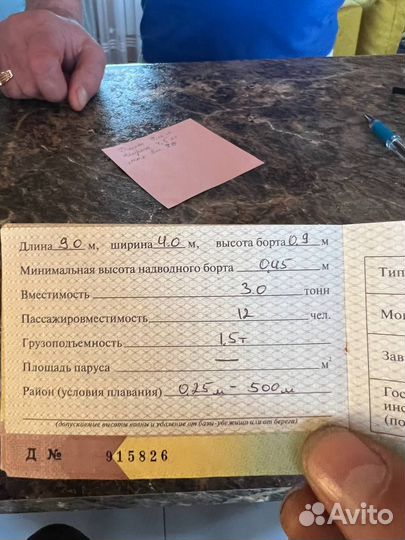 Длина 9.0 м, ширина 4.0 м, высота борта 0,9 м
Минимальная высота надводного борта 0,45 м
Вместимость 3.0 тонн
Пассажировместимость 12 чел.
Грузоподъемность 1,5т
Площадь паруса — м²
Район (условия плавания) 0,25 м - 500 м
(допускаемые высоты волны и удаление от базы-убежища или от берега)
Д № 915826
Тип
Мо
Зав
Гос
инс
(по
Avito